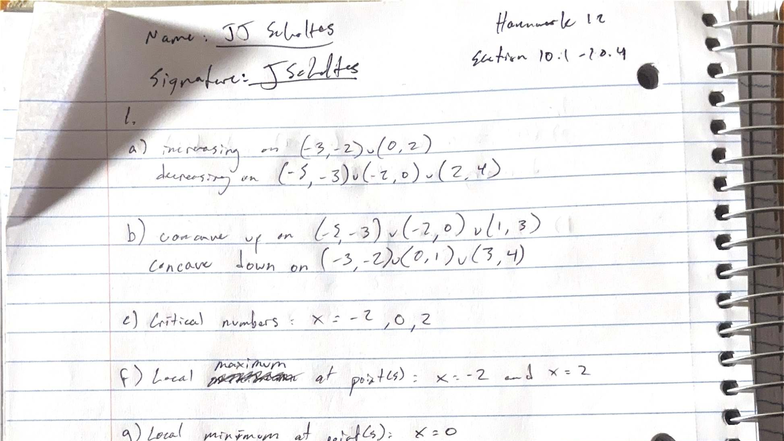 Name: JJ Scholtes
Homework 12
Signature: J Scholtes
Section 10.1-10.4
1.
a) increasing on (-3,-2)∪(0,2)
decreasing on (-5,-3)∪(-2,0)∪(2,4)
b) concave up on (-5,-3)∪(-2,0)∪(1,3)
concave down on (-3,-2)∪(0,1)∪(3,4)
e) Critical numbers: x=-2,0,2
f) Local maximum at point(s): x=-2 and x=2
g) Local minimum at point(s): x=0